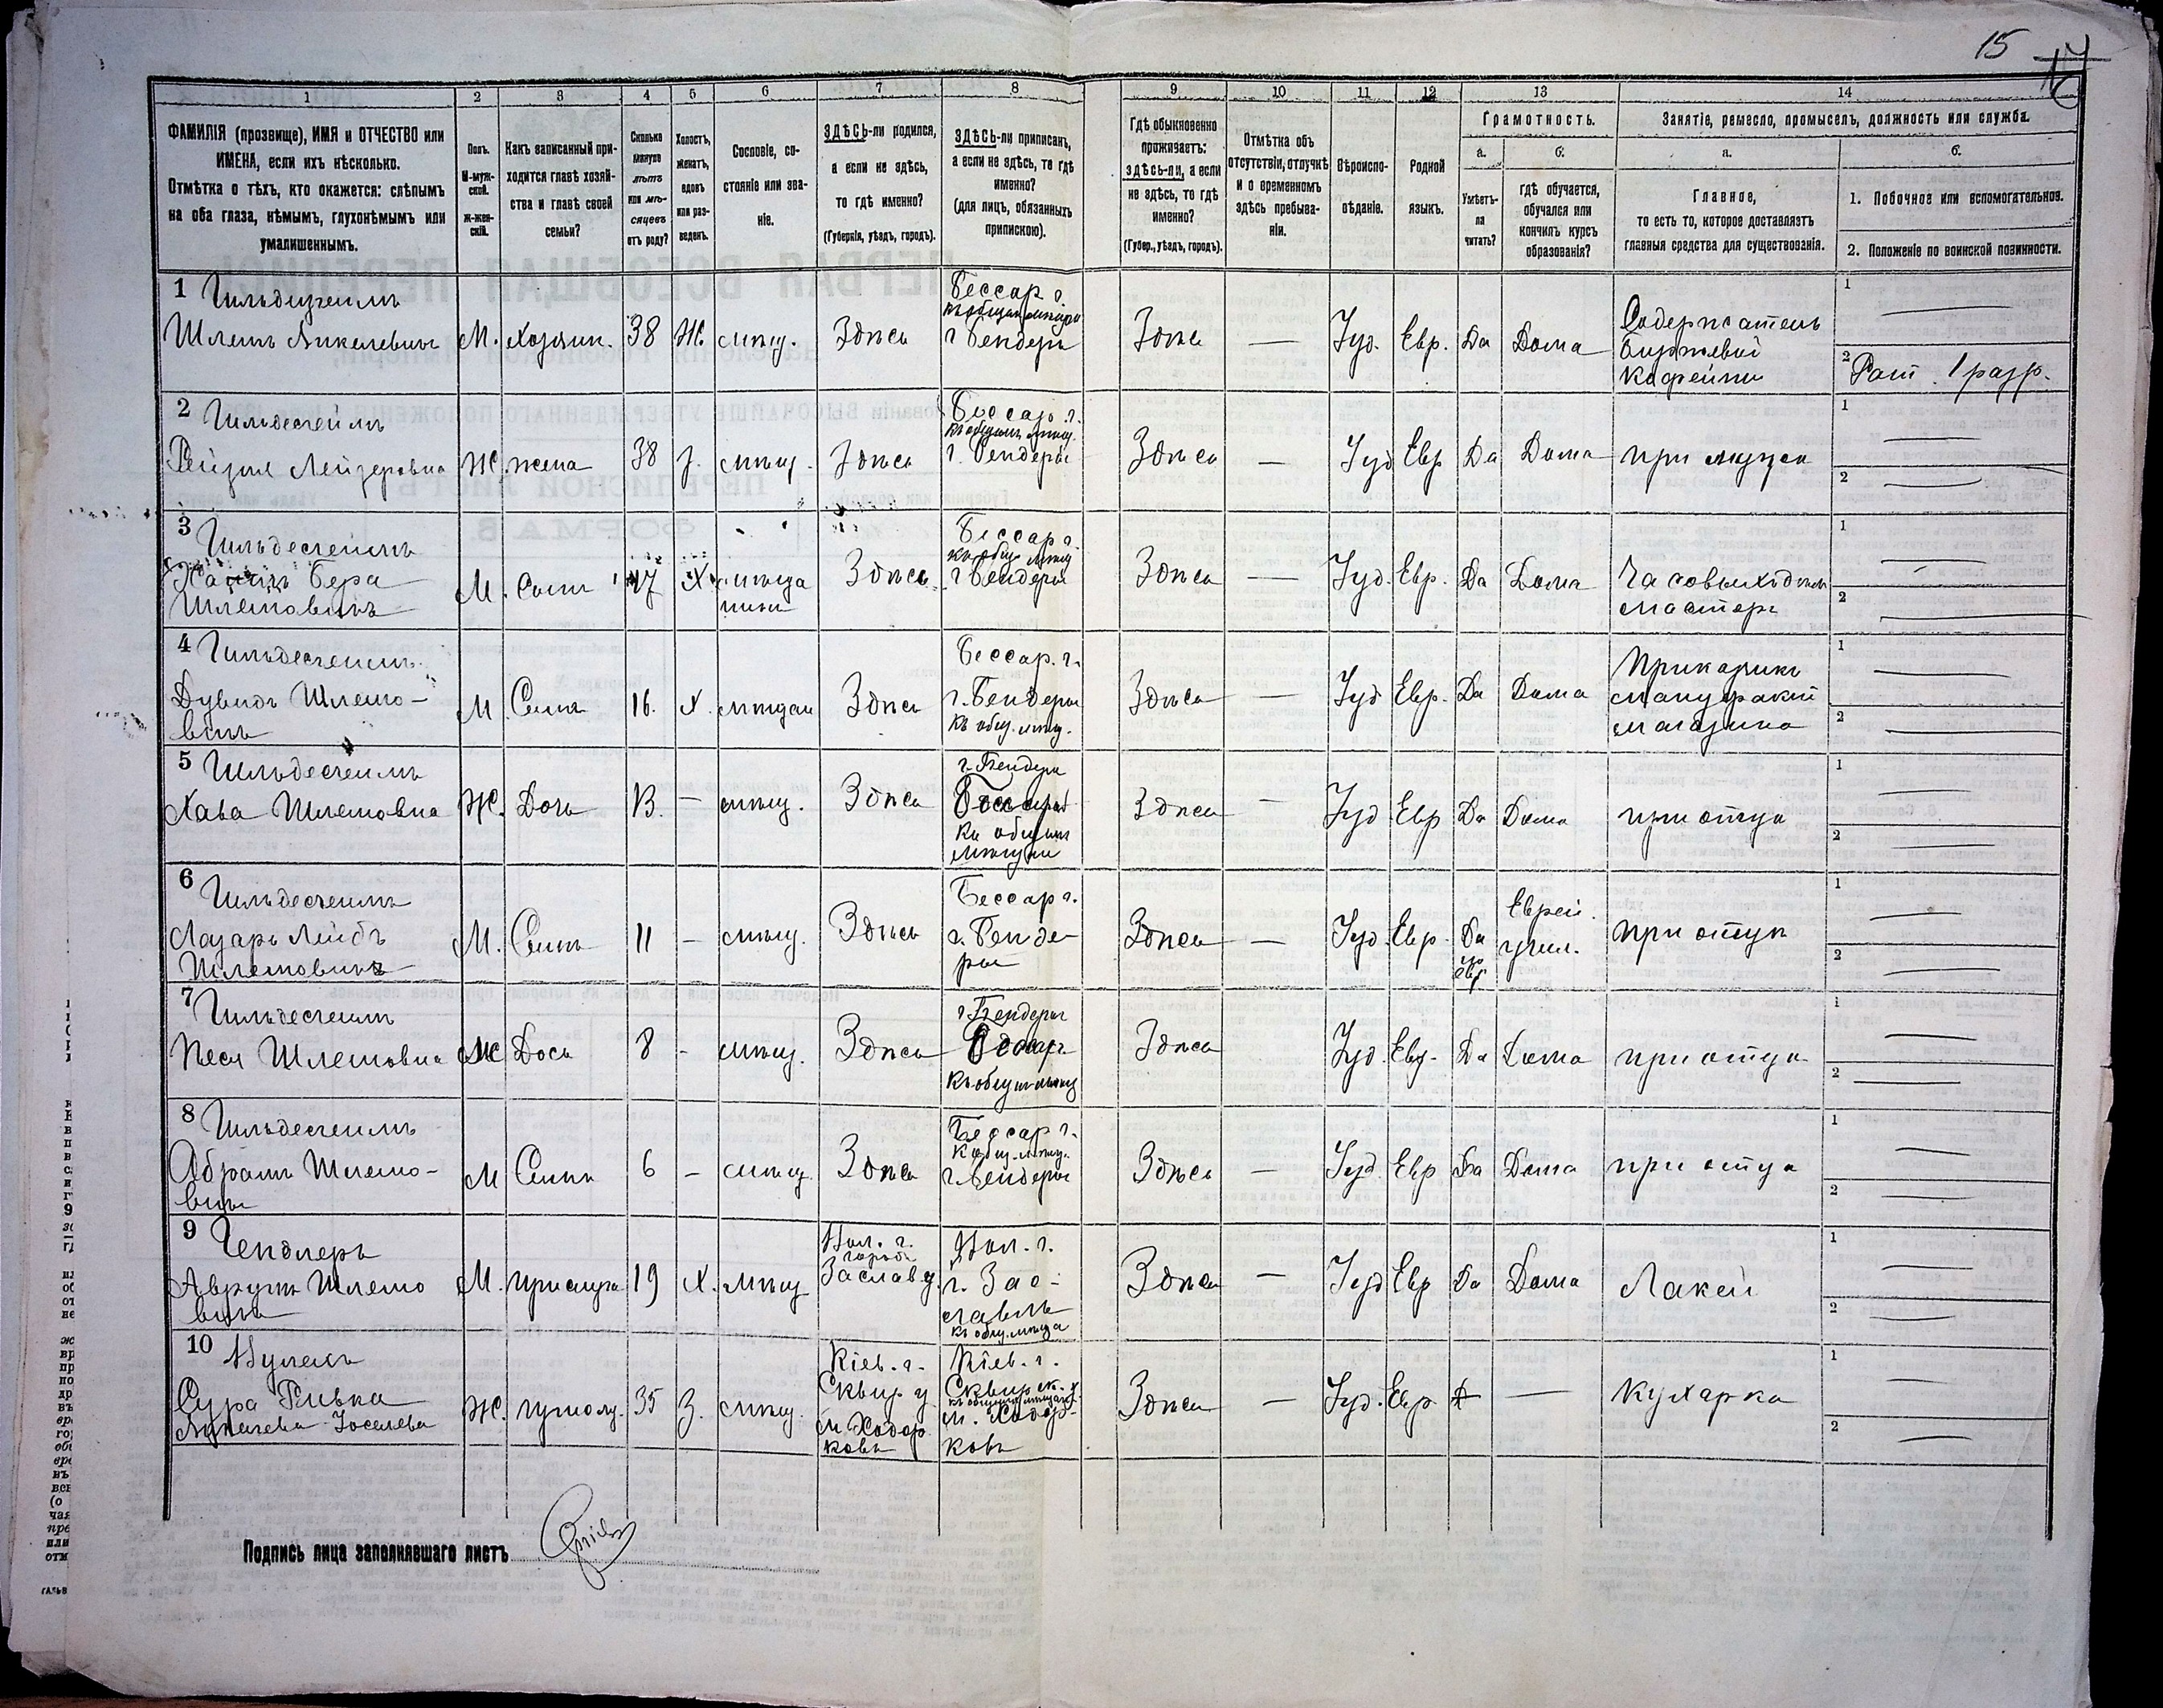 15
1 2 3 4 5 6 7 8 9 10 11 12 13 14
ФАМИЛІЯ (прозвище), ИМЯ и ОТЧЕСТВО или
ИМЕНА, если ихъ нѣсколько.
Отмѣтка о тѣхъ, кто окажется: слѣпымъ
на оба глаза, нѣмымъ, глухонѣмымъ или
умалишеннымъ.
Полъ.
М-муж-
ской.
Ж-жен-
скій.
Какъ записанный при-
ходится главѣ хозяй-
ства и главѣ своей
семьи?
Сколько
минуло
лѣтъ
или мѣ-
сяцевъ
отъ роду?
Холостъ,
женатъ,
вдовъ
или раз-
веденъ.
Сословіе, со-
стояніе или зва-
ніе.
ЗДѢСЬ-ли родился,
а если не здѣсь,
то гдѣ именно?
(Губернія, уѣздъ, городъ).
ЗДѢСЬ-ли приписанъ,
а если не здѣсь, то гдѣ
именно?
(для лицъ, обязанныхъ
припискою).
Гдѣ обыкновенно
проживаетъ:
здѣсь-ли, а если
не здѣсь, то гдѣ
именно?
(Губер., уѣздъ, городъ).
Отмѣтка объ
отсутствіи, отлучкѣ
и о временномъ
здѣсь пребыва-
ніи.
Вѣроиспо-
вѣданіе.
Родной
языкъ.
Грамотность.
а.
Умѣетъ-
ли
читать?
б.
гдѣ обучается,
обучался или
кончилъ курсъ
образованія?
Занятіе, ремесло, промыселъ, должность или служба.
а.
Главное,
то есть то, которое доставляетъ
главныя средства для существованія.
б.
1. Побочное или вспомогательное.
2. Положеніе по воинской повинности.
1
Шлема
М. Хозяин. 38 Ж. мѣщ. Здѣсь
Бессар г.
г Бендеры
Здѣсь — Іуд. Евр. Да Дома
Содержатель
биржевой
кофейни
1 —
2 Рат. 1 разр.
2 Гильдесгеймъ
Рейзя Лейзеровна Ж. жена 38 З. мѣщ. Здѣсь
Бессар. г.
къ общ. мѣщ.
г. Бендеры
Здѣсь — Іуд Евр Да Дома при мужѣ
1 —
2 —
3 Гильдесгеймъ
Хаимъ Бера
Шлемовичъ
М. Сынъ 17 Х
Здѣсь
Бессар г.
г Бендеры
Здѣсь — Іуд. Евр. Да Дома
мастеръ
1 —
2 —
4 Гильдесгеймъ
Дувидъ Шлемо-
вичъ
М. Сынъ 16. Х. мѣщан Здѣсь
Бессар. г.
г. Бендеры
къ общ. мѣщ.
Здѣсь — Іуд Евр. Да Дома
Приказчикъ
мануфакт
магазина
1 —
2 —
5 Гильдесгеймъ
Хава Шлемовна Ж. Дочь 13. — мѣщ. Здѣсь
г. Бендеры
Бессараб
къ общ.
Здѣсь — Іуд Евр Да Дома при отцѣ
1 —
2 —
6 Гильдесгеймъ
Лазарь Лейбъ
Шлемовичъ
М. Сынъ 11 — мѣщ. Здѣсь
Бессар г.
г. Бенде-
ры
Здѣсь — Іуд. Евр. Да
по
евр
Еврей.
учил.
при отцѣ
1 —
2 —
7 Гильдесгеймъ
Песя Шлемовна Ж Дочь 8 - мѣщ. Здѣсь
г Бендеры
Здѣсь Іуд. Евр. Да Дома при отцѣ
1 —
2 —
8 Гильдесгеймъ
Абрамъ Шлемо-
вичъ
М Сынъ 6 — мѣщ. Здѣсь
Бессар г.
г. Бендеры
Здѣсь — Іуд Евр Да Дома при отцѣ
1 —
2 —
9 Гендлеръ
Аврумъ Шлемо
вичъ
М. прислуга 19 Х. мѣщ
Вол. г.
городъ
Заславъ
Вол. г.
г. Зас-
лавль
къ общ.
Здѣсь — Іуд Евр Да Дома Лакей
1 —
2 —
10
Сура Ривка
Ж. прислуг. 35 З. мѣщ.
Кіев. г.
Сквир у
м Ходор
ковъ
Кіев. г.
Сквирск. у
м. Ходор-
ковъ
Здѣсь — Іуд. Евр — Кухарка
1 —
2 —
Подпись лица заполнявшаго листъ